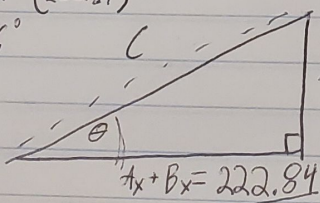 C
θ
Ax + Bx = 222.84